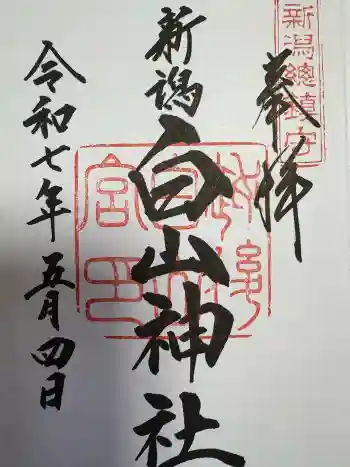 新潟總鎮守
奉拝
新潟
白山神社
令和七年五月四日